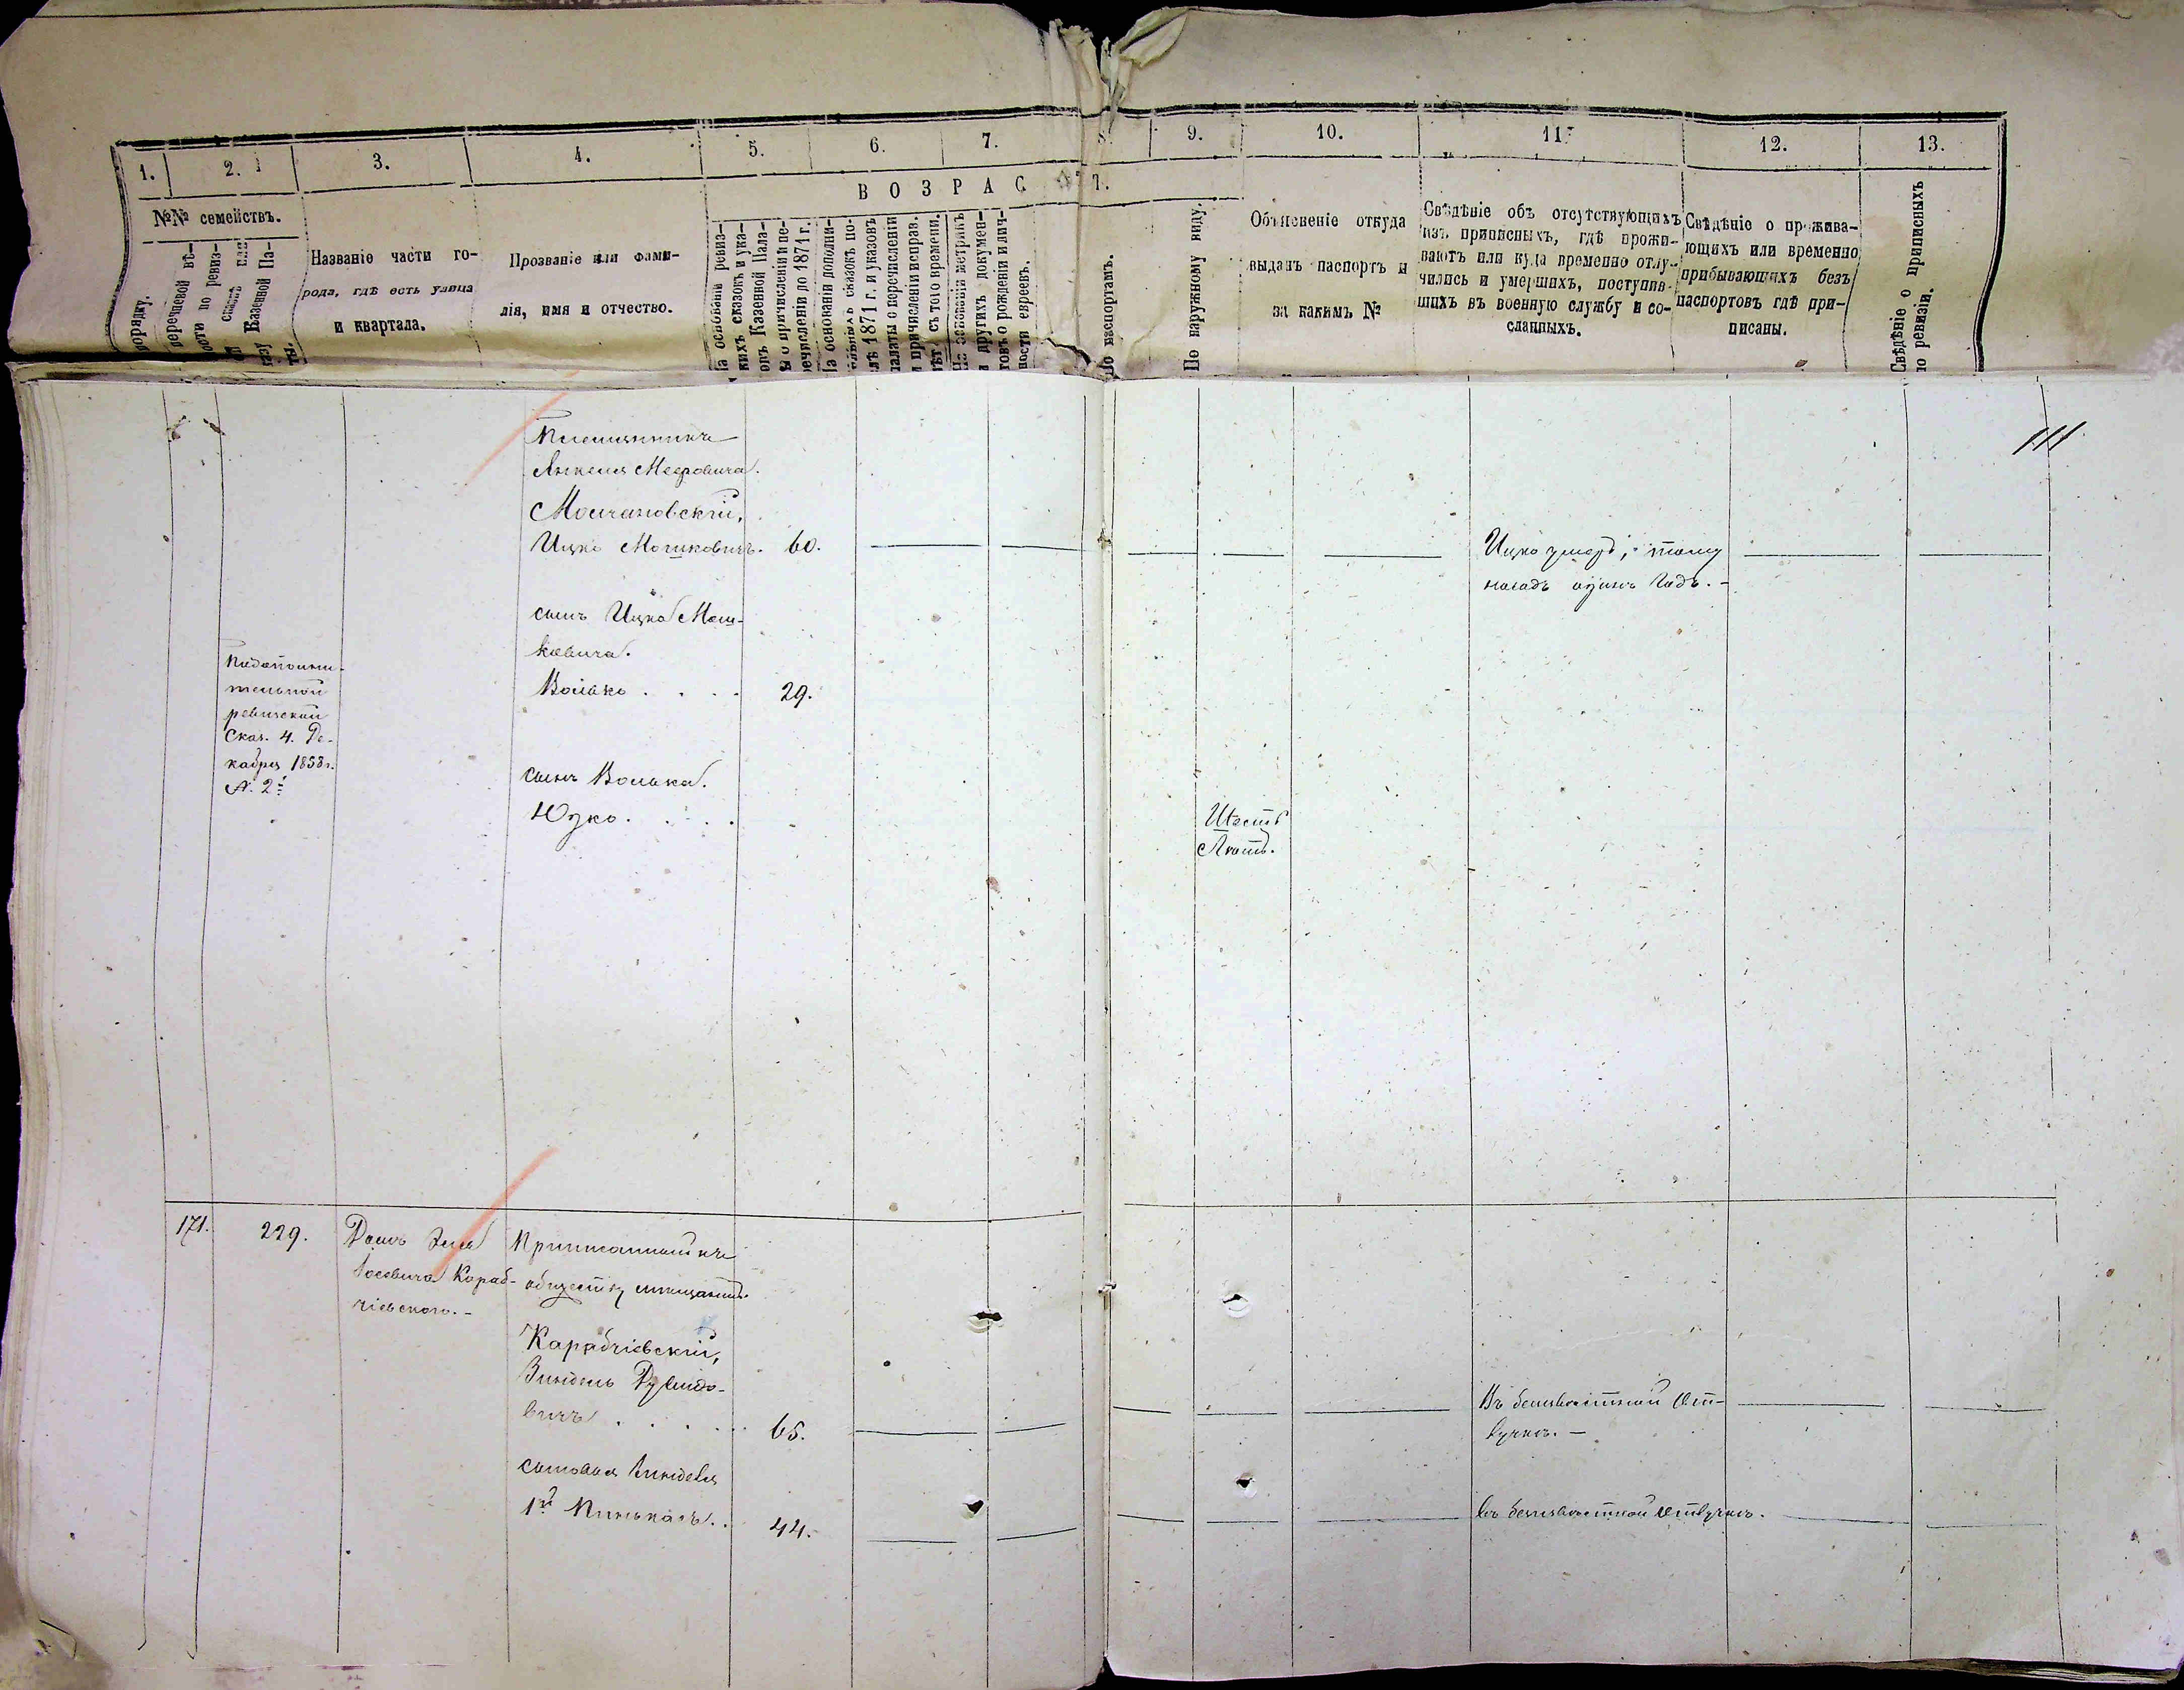 1. 2. 3. 4. 5. 6. 7. 8. 9. 10. 11. 12. 13.
ВОЗРАСТ.
№№ семействъ.
порядку.
перечневой вѣ-
ости по ревиз-
сказкѣ или
казу Казенной Па-
ты.
Названіе части го-
рода, гдѣ есть улица
и квартала.
Прозваніе или фами-
лія, имя и отчество.
На основаніи ревиз-
скихъ сказокъ и ука-
зовъ Казенной Пала-
ы о причисленіи и пе-
речисленіи до 1871 г.
На основаніи дополни-
ельныхъ сказокъ по-
лѣ 1871 г. и указовъ
палаты о перечисленіи
и причисленіи исправ.
лѣтъ съ того времени.
На основаніи метрикъ
и другихъ докумен-
товъ о рожденіи и лич-
ности евреевъ.
По паспортамъ.
По наружному виду.
Объясненіе откуда
выданъ паспортъ и
за какимъ №
Свѣдѣніе объ отсутствующихъ
изъ приписныхъ, гдѣ прожи-
ваютъ или куда временно отлу-
чились и умершихъ, поступив-
шихъ въ военную службу и со-
сланныхъ.
Свѣдѣніе о прожива-
ющихъ или временно
прибывающихъ безъ
паспортовъ гдѣ при-
писаны.
Свѣдѣніе о приписныхъ
по ревизіи.
111
Племянникъ
Янкеля Мееровича
Молчановскій,
Ицко Мошковичъ. 60.
Ицко умеръ, тому
назадъ одинъ годъ.-
сынъ Ицка Мош-
ковича.
Волько . . . . 29.
По дополни-
тельной
ревизской
Сказ. 4. Де-
кабря 1858 г.
№ 2
сынъ Волька.
Юзко. . . .
Шесть
Лѣтъ.
171. 229.
Домъ Зел
Іосевича Караб-
чіевскаго.-
Приписанный къ
обществу мѣщанинъ
Карабчіевскій,
Зиндель Дувидо-
вичъ . . . . 65.
Въ безизвѣстной От-
лучкѣ. -
сыновья Зинделя
1й Пинькасъ. . 44.
въ безизвѣстной отлучкѣ.